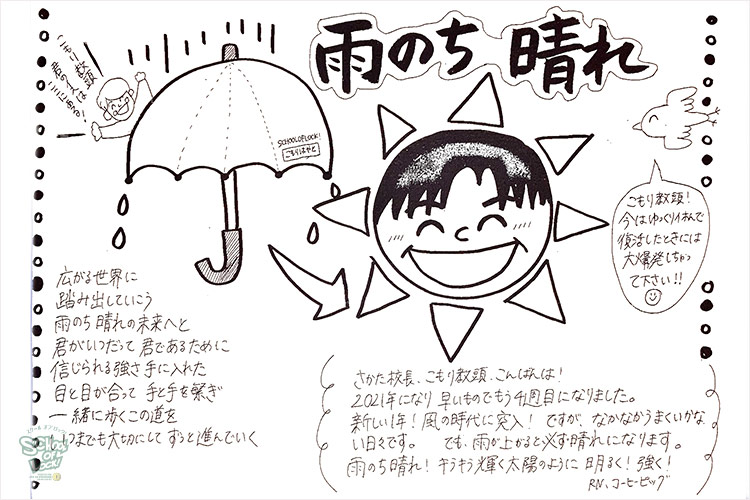 雨のち晴れ
こもり教頭
SCHOOL OF LOCK!
こもりはやと
こもり教頭!
今はゆっくり休んで
復活したときには
大爆発しちゃっ
て下さい!!
広がる世界に
踏み出していこう
雨のち晴れの未来へと
君がいつだって君であるために
信じられる強さ手に入れた
目と目が合って 手と手を繋ぎ
一緒に歩くこの道を
いつまでも大切にして ずっと進んでいく
さかた校長、こもり教頭、こんばんは!
2021年になり早いものでもう4週目になりました。
新しい1年!風の時代に突入! ですが、なかなかうまくいかな
い日々です。 でも、雨が上がると必ず晴れになります。
雨のち晴れ!キラキラ輝く太陽のように 明るく!強く!
RN、コーヒービッグ